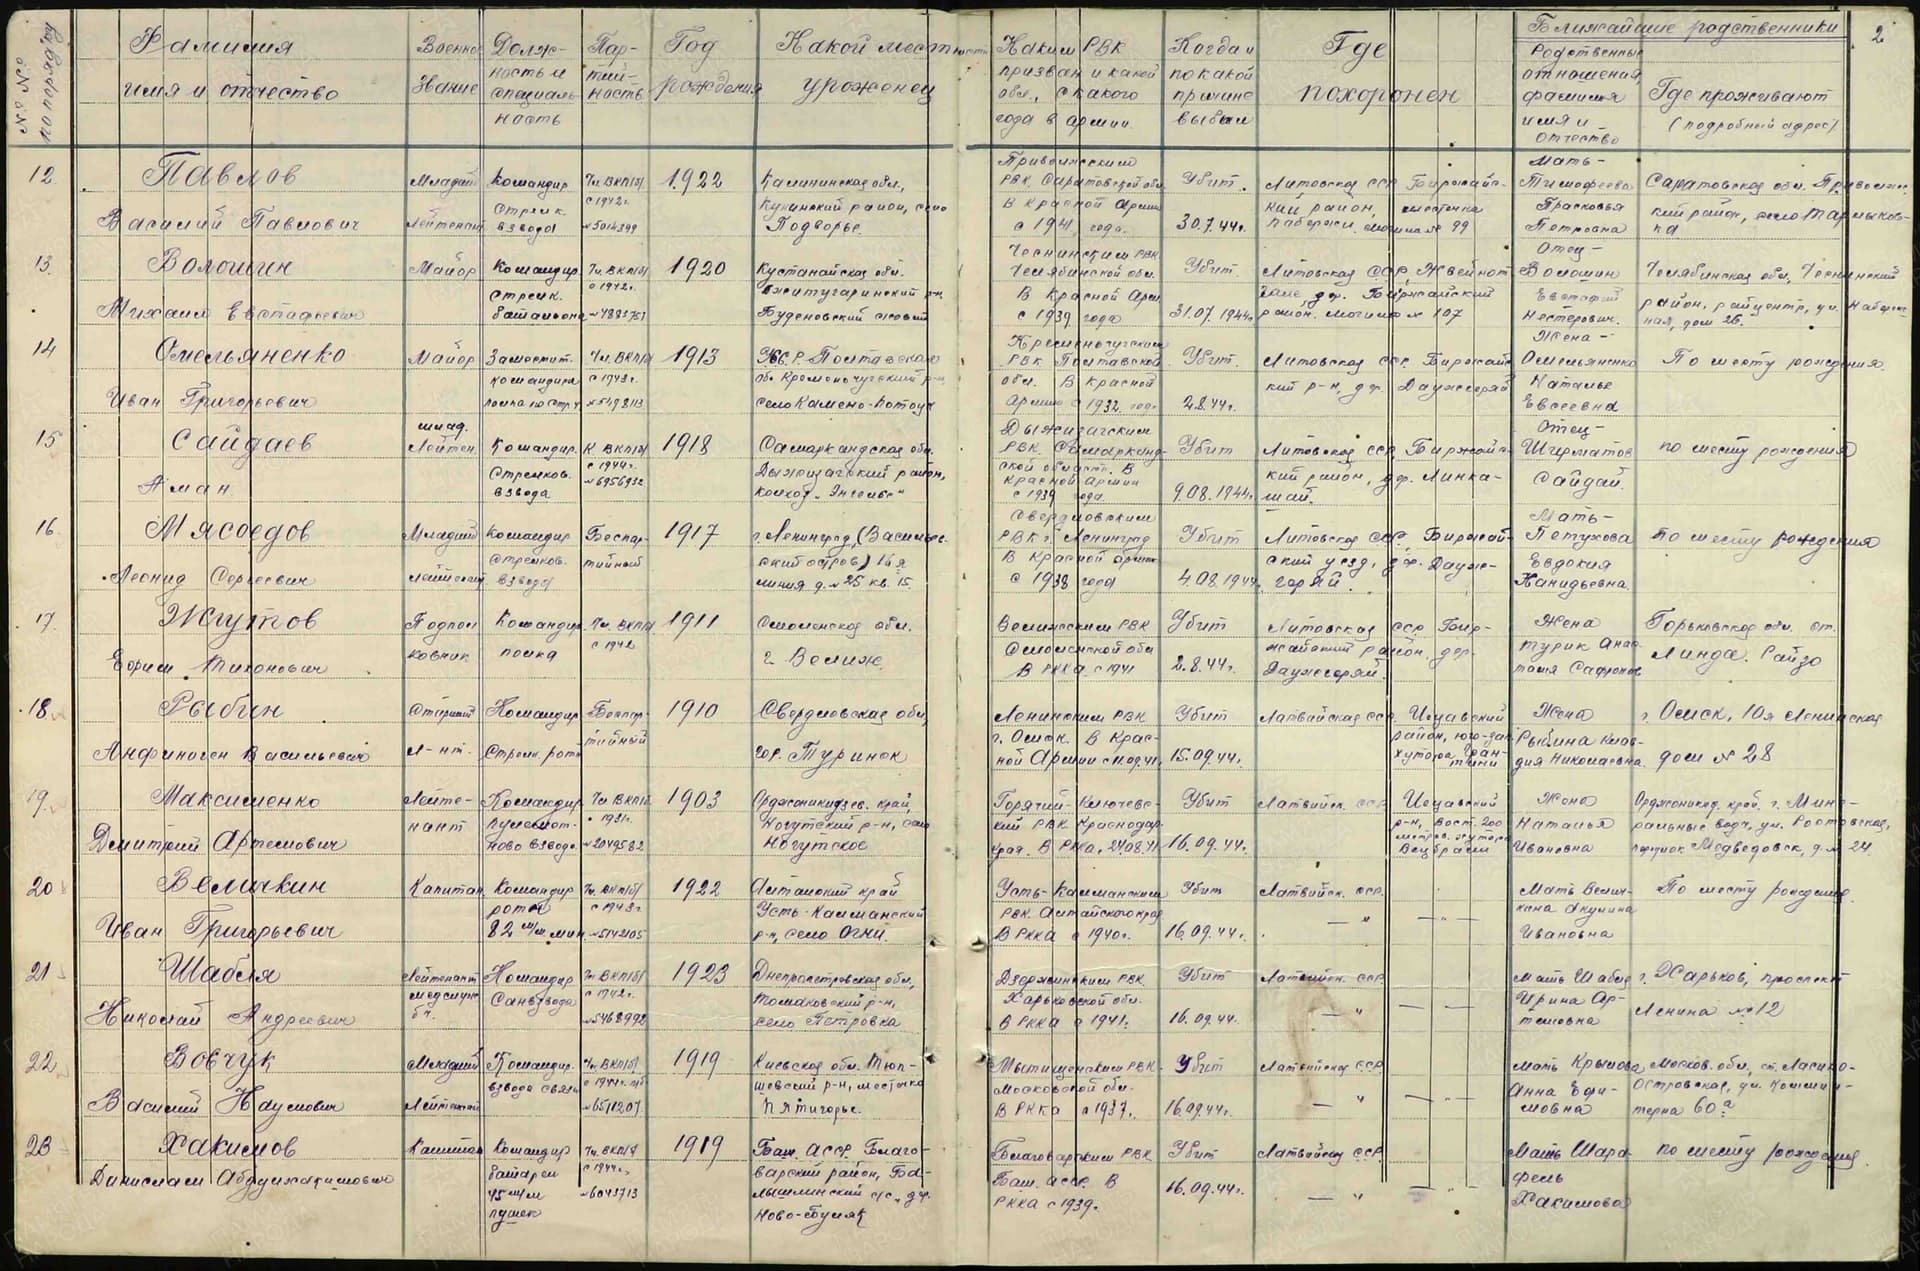 № № по порядку
Фамилия имя и отчество
Военное звание
Должность и специальность
Партийность
Год рождения
Какой местности уроженец
Каким РВК призван и какой обл., с какого года в армии
Когда и по какой причине выбыл
Где похоронен
Ближайшие родственники
Родственные отношения, фамилия имя и отчество
Где проживают (подробный адрес)
2
12
Павлов
Василий Павлович
Младший Лейтенант
Командир стрелк. взвода
Чл. ВКП(б) с 1942 г.
1922
Калининская обл.,
район, село
Подворье.
РВК Саратовской обл.
В Красной Армии
с 1941 года.
Убит.
30.7.44г.
Литовская ССР Биржайский район,
могила № 99
Мать – Тимофеева Прасковья Петровна
Саратовская обл.
13.
Волошин
Михаил Евстафьевич
Майор
Командир стрелк. батальона
Чл. ВКП(б) с 1942г.
1920
Кустанайская обл.
Джитугаринский р-н,
Чесменским РВК
Челябинской обл.
В Красной Арм.
с 1939 года
Убит.
31.07.1944г.
Литовская ССР,
Биржайский район. могила № 107
Отец – Волошин Евстафий Нестерович.
Челябинская обл. Чесменский район, райцентр, ул. Набережная, дом 26.
14
Омельяненко
Иван Григорьевич
Майор
Заместит. командира полка по стр.ч
Чл. ВКП(б) с 1943г.
1913
УССР Полтавская обл. Кременчугский р-н,
село Камено-Потоцк
Кременчугским РВК Полтавской обл. В Красной Армии с 1932 года
Убит.
2.8.44г.
Литовская ССР Биржайский р-н, дер. Даужгеряй
Жена – Омельяненко Наталье Евсеевна
По месту рождения.
15
Сайдаев
Аман
млад. Лейтен.
Командир. Стрелков. взвода
К ВКП(б) с 1944г. №6956932
1918
Самаркандская обл.
район,
колхоз „Энгельс"
РВК Самаркандской област. В Красной Армии с 1939 года.
Убит
9.08.1944г.
Литовская ССР, Биржайский район, дер.
Отец – Ширматов Сайдай.
по месту рождения
16
Мясоедов
Леонид Сергеевич
Младший Лейтенант
Командир стрелков. взвода
Беспартийный
1917
г. Ленинград, (Васильевский остров) 16я линия д. №25 кв. 15.
Свердловским РВК г. Ленинград
В Красной армии
с 1938 года
Убит
4.08.1944г.
Литовская ССР, Биржайский уезд, дер. Даужгеряй.
Мать – Петухова Евдокия
по месту рождения
17.
Жгутов
Ефрем Тихонович
Подполковник
Командир полка
Чл. ВКП(б) с 1942
1911
Смоленская обл.
г. Велиж.
Велижским РВК
Смоленской обл
В РККА с 1941
Убит
2.8.44г.
Литовская ССР Биржайский район дер. Даужгеряй.
Жена
Горьковская обл. ст. Линда.
18.
Рыбин
Анфиноген Васильевич
Старший л-нт.
Командир Стрелк. роты
Беспартийный
1910
Свердловская обл.,
гор. Туринск
Ленинским РВК
г. Омск. В Красной Армии с 11.09.41
Убит
15.09.44г.
Латвийская ССР, Иецавский район,
Жена Рыбина Клавдия Николаевна
г. Омск, 10я Ленинская дом № 28
19.
Максименко
Дмитрий Артемович
Лейтенант
Командир пулеметного взвода
Чл ВКП(б) с 1931г. №2049582
1903
Орджоникидзев. край,
Ногутский р-н, село
Ногутское
Горячий-Ключевской РВК Краснодар. края. В РККА с 24.08.41
Убит
16.09.44г.
Латвийск. ССР
Иецавский р-н, вост. 200 метров. хутора
Жена Наталья Ивановна
Орджоникид. край. г. Минеральные воды, ул. Ростовская,
20
Величкин
Иван Григорьевич
Капитан
Командир роты 82 м/м мин.
Чл. ВКП(б) с 1943г. №5142105
1922
Алтайский край
Усть-Калманский
р-н, село Огни.
Усть-Калманским РВК Алтайского края
В РККА с 1940г.
Убит
16.09.44г.
Латвийск. ССР.
— „ —
Мать Величкина Акулина Ивановна
По месту рождения.
21
Шабля
Николай Андреевич
Лейтенант медслужбы.
Командир Санвзвода
Чл ВКП(б) с 1942г. №5468992
1923
Днепропетровская обл.,
Томаковский р-н,
село Петровка
Дзержинским РВК
Харьковской обл.
В РККА с 1941г.
Убит
16.09.44.
Латвийск. ССР
— „ —
Мать Шабля Ирина Артемовна
г. Харьков, проспект Ленина №12
22
Вовчук
Василий Наумович
Младший Лейтенант
Командир. взвода связи
Чл. ВКП(б) №6571207
1919
Киевская обл.
р-н, местечка
Пятигоры.
Мытищенским РВК
Московской обл.
В РККА с 1937г.
Убит
16.09.44г.
Латвийская ССР
— „ —
мать Крылова Анна Ефимовна
Москов. обл., ст. Лосиноостровская, ул. Коминтерна 60а
23
Хакимов
Капитан
Командир батареи 45 м/м пушек
Чл. ВКП(б) с 1944г. №6043713
1919
Баш. АССР. Благоварский район,
с/с, дер. Ново-Буляк
Благоварским РВК
Баш. АССР. В
РККА с 1939г.
Убит
16.09.44г.
Латвийская ССР.
— „ —
Мать Хакимова
по месту рождения